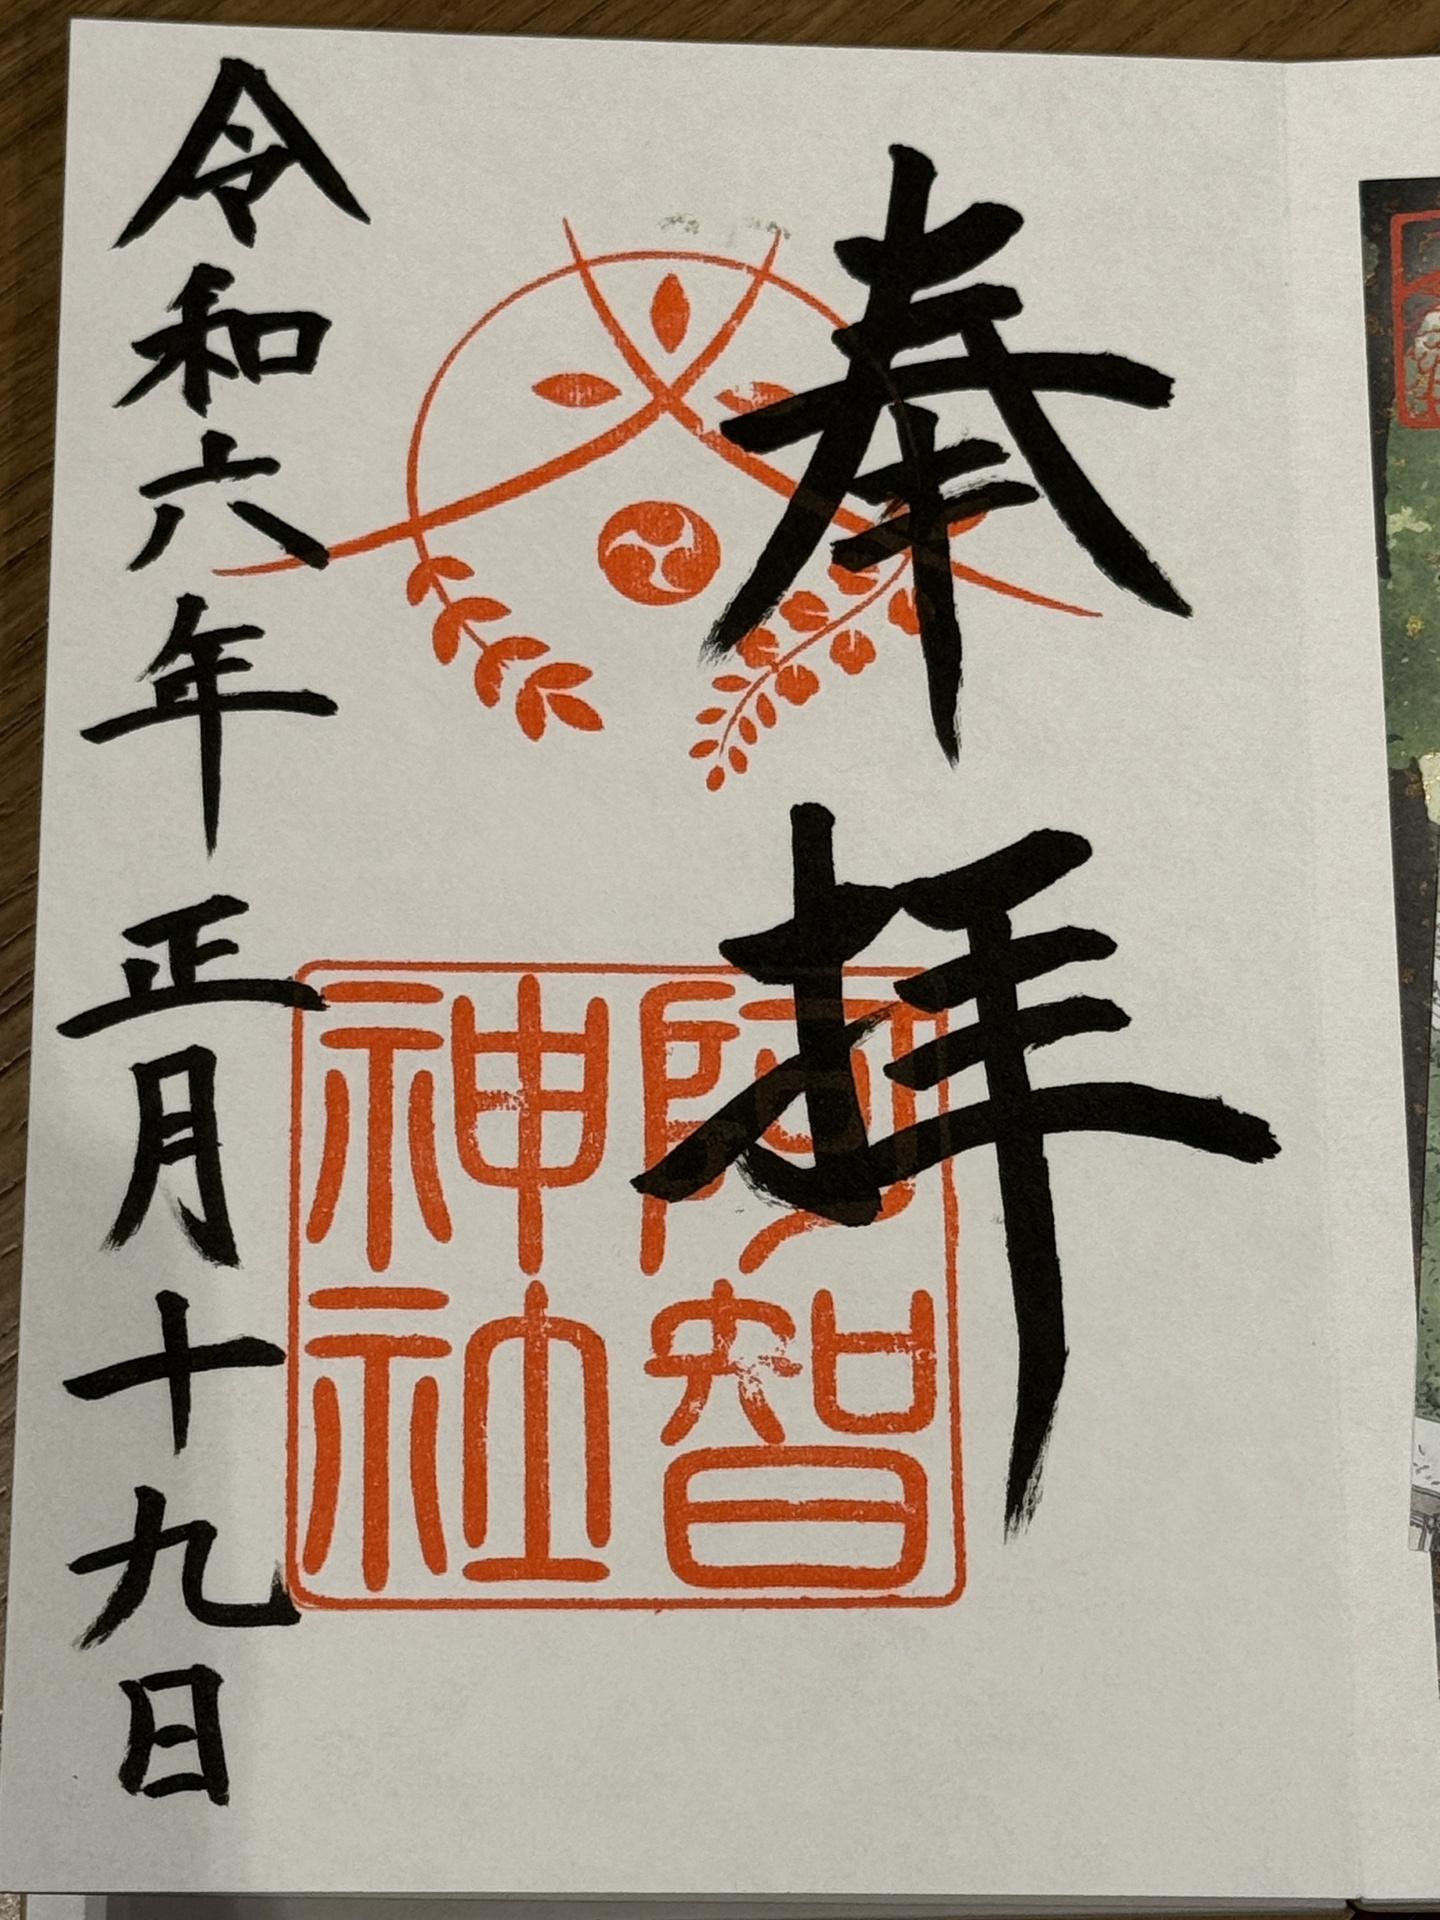 奉拝
阿智
神社
令和六年正月十九日